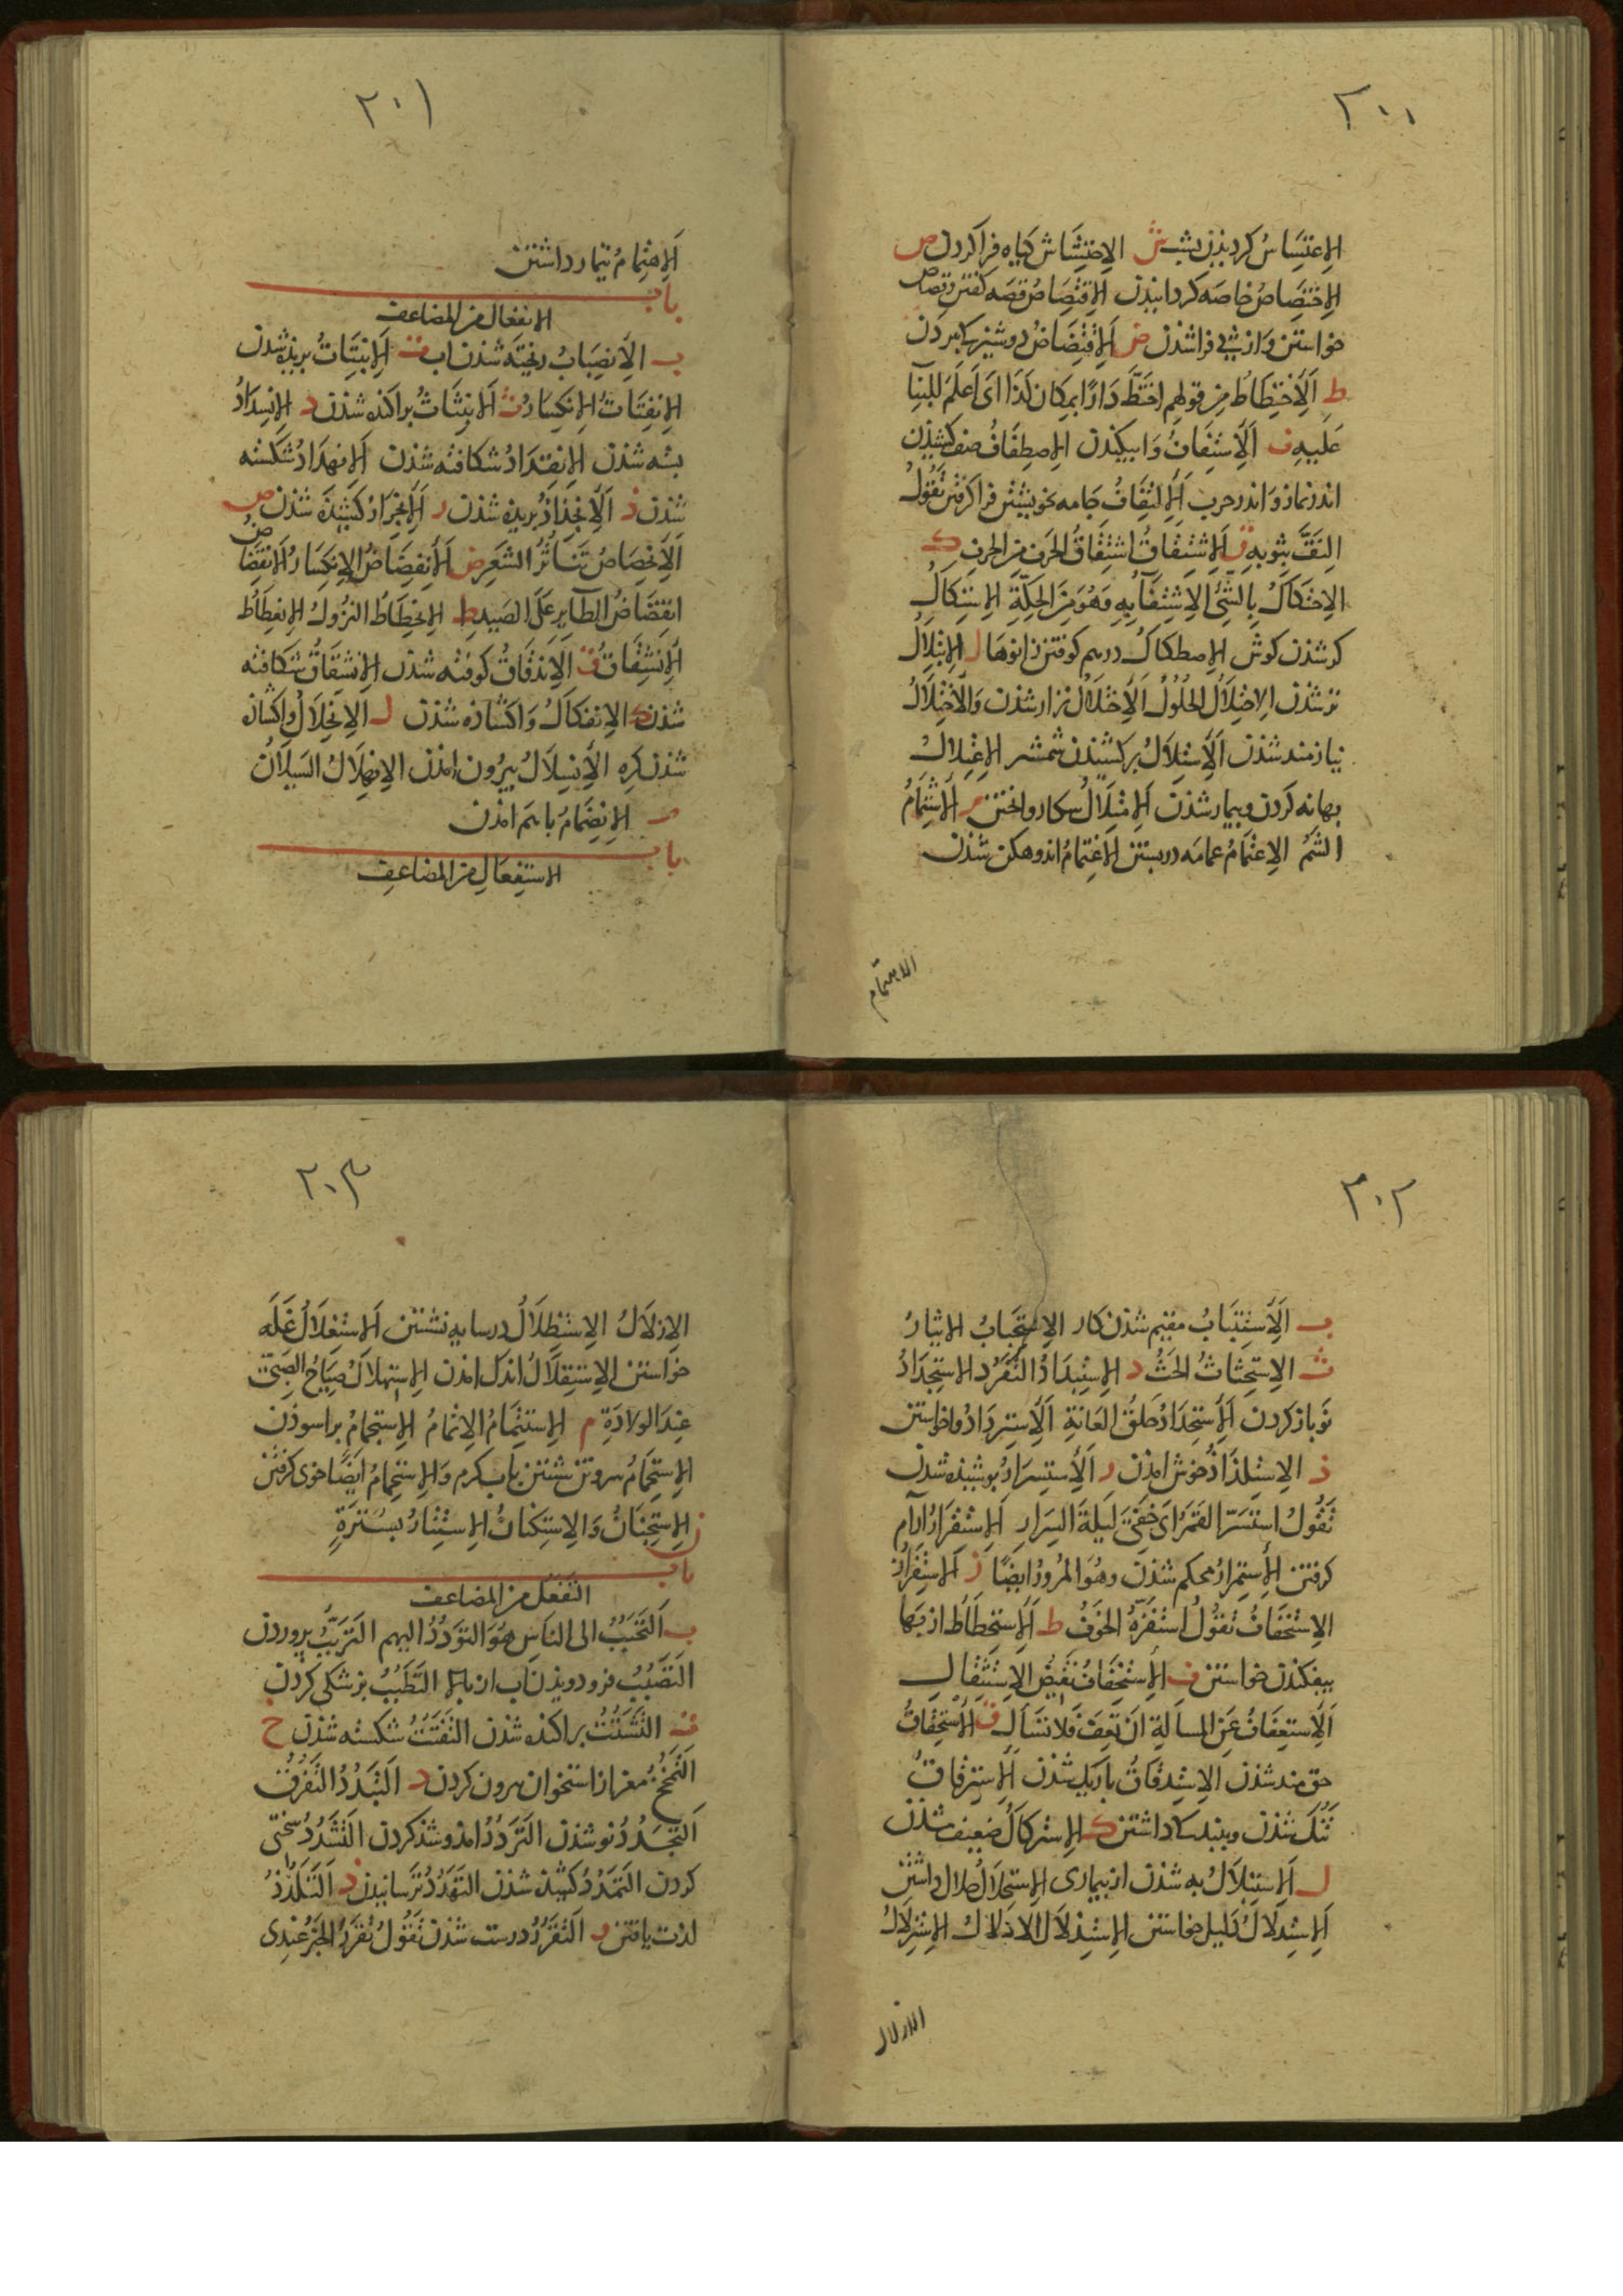 ٢٠٠
الاِعْتِسَاسُ کردیذن بشب ش الاِحْتِشَاش کیاه فراکردن ص
الاِخْتِصَاصُ خاصه کردانیدن الاِقْتِصَاصُ قصه کفتن وقصاص
خواستن واز پی فراشدن ض اَلاِقْتِضَاضُ دوشیزکی بردن
ط اَلاِخْتِطَاط من قولهم اختَطَّ دَارًا بمکان کذا ای اَعلَمَ للبنآ
عَلَیهِ ف اَلاِشتِفَافُ وَا الاِصطِفَافُ صف کشیدن
اندر نماز و اندر حرب اَلاِلتِفَافُ جامه بخویشتن فراکرفتن تَقُولُ
التَفَّ بثوبهِ ق اَلاِشتِقَاقُ اشتِقَاقُ الحَرف من الحرف ک
الاِحتکَاکُ بِالشَّیءِ وَهُوَ مِنَ الحِکَّةِ الاِستِکَاکُ
کر شدن کوش الاِصطکاکُ درهم کوفتن زانوها ل الاِبتِلالُ
تر شدن الاِحتِلَالُ الحُلُولُ اَلاِختِلَالُ نزار شدن وَالاختِلَالُ
نیازمند شدن اَلاِستِلَالُ برکشیدن شمشیر الاِعتِلالُ
بهانه کردن وبیمار شدن م اَلاِشتِمَامُ
الشمُ الاِعتِمَامُ عمامه دربستن الاِغتِمَامُ اندوهکن شدن
الاهتمام
٢٠١
اَلاِهتِمَامُ تیمار داشتن
باب
الانفعال من المضاعف
ب الاِنصِبَابُ ریخته شدن اب ت اَلاِنبِتَاتُ بریذه شدن
الاِنفِتَاتُ الاِنکِسَارُ ث اَلاِنبِثَاثُ براکنده شدن د الاِنسِدَادُ
بسته شدن الاِنقِدَادُ شکافته شدن اَلاِنهِدَادُ شکسته
شدن ذ اَلاِنجِذَاذُ بریده شدن ر اَلاِنجِرَارُ کشیده شدن ص
اَلاِنحِصَاصُ تَنَاثُرُ الشَّعرِ ض اَلاِنفِضَاضُ الاِنکِسَارُ الاِنقِضَاضُ
انقِضَاضُ الطَّایِرِ عَلَی الصَیدِ ط الاِنحِطَاطُ النزُولُ الاِنعِطَاطُ
الاِنشِقَاق ق الاِندِقَاقُ کوفته شدن الاِنشِقَاقُ شکافته
شدن ک الاِنفکَاکُ وَاکشاده شدن ل الاِنحِلَالُ واکشاده
شدن کره الاِنسِلَالُ بیرون امدن الاِنهِلَالُ السَیَلَانُ
م الاِنضِمَامُ باهم امدن
باب
الاستفعال من المضاعف
٢٠٢
ب اَلاِستِتبَابُ مقیم شدن کار الاِستِحبَابُ الایثارُ
ث الاِستِحثَاثُ الحَثُّ د الاِستِبدَادُ التَّفَرُّد الاستِجدَادُ
نو باز کردن اَلاِستِحدَادُ حَلقُ العَانَةِ اَلاِستِردَادُ وا خواستن
ذ الاِستِلذَاذُ خوش امدن ر اَلاِستِسرَارُ بوشیده شدن
تَقُولُ استَسَرّ القَمَرُ ای خَفِیَ لَیلَةَ السِرَارِ اَلاِستِقرَارُ آرام
کرفتن الاِستِمرَارُ محکم شدن وهُوَ المُرورُ ایضًا ز اَلاِستِفزَازُ
الاِستخفَافُ تقُولُ استَفَزَّهُ الخَوفُ ط اَلاِستِحطَاطُ از بها
بیفکندن خواستن ف الاِستِخفَافُ نَقیضُ الاِستِثقَالِ
اَلاِستِعفَافُ عَنِ المسألةِ ان تَعِفَّ فلا تَسأَلَ ق الاِستِحقَاقُ
حق مند شدن الاِستِدقَاقُ باریک شدن اَلاِستِرقَاقُ
تُنُک شدن وببندکی داشتن ک الاِسترکاکُ ضعیف شدن
ل اَلاِستِبلَالُ به شدن از بیماری الاِستِحلَالُ حلال داشتن
اَلاِستِدلَالُ دَلیل خواستن الاِستِذلَالُ الاذلالُ الاِستِزلَالُ
الازلال
٢٠٣
الاِزلَالُ الاِستِظلَالُ درسایه نشستن اَلاِستِغلَالُ غَلّه
خواستن الاِستِقلَالُ اندک امدن الاِستِهلَالُ صِیَاحُ الصَبِیّ
عِندَ الوِلَادَةِ م الاِستِتمَامُ الاِتمَامُ الاِستِجمَامُ براسودن
الاِستِحمَامُ سروتن شستن باب کرم وَالاِستِحمَامُ ایضًا خوی کرفتن
ن الاِستِجنَانُ وَالاِستِکنَانُ الاِستِتَارُ بسُترَةٍ
باب
التفعّل من المضاعف
ب التَحَبُّبُ الی الناسِ هُوَ التوَدُّدُ الیهم التَرَبُّبُ پروردن
التَصَبُّبُ فرو دویدن اب از بالا التَطَبُّبُ بزشکی کردن
ت التَشَتُّتُ براکنده شدن التَفَتُّتُ شکسته شدن خ
التَمَخُّخُ مغز از استخوان بیرون کردن د التَبَدُّدُ التَّفَرُّقُ
التَجَدُّدُ نو شدن التَرَدُّدُ امدوشد کردن التَشَدُّدُ سختی
کردن التَمَدُّدُ کشیده شدن التَهَدُّدُ ترسانیدن ذ التَلَذُّذُ
لذت یافتن ر التَقَرُّرُ درست شدن تَقُولُ تَقَرَّرَ الخَبَرُ عِندِی